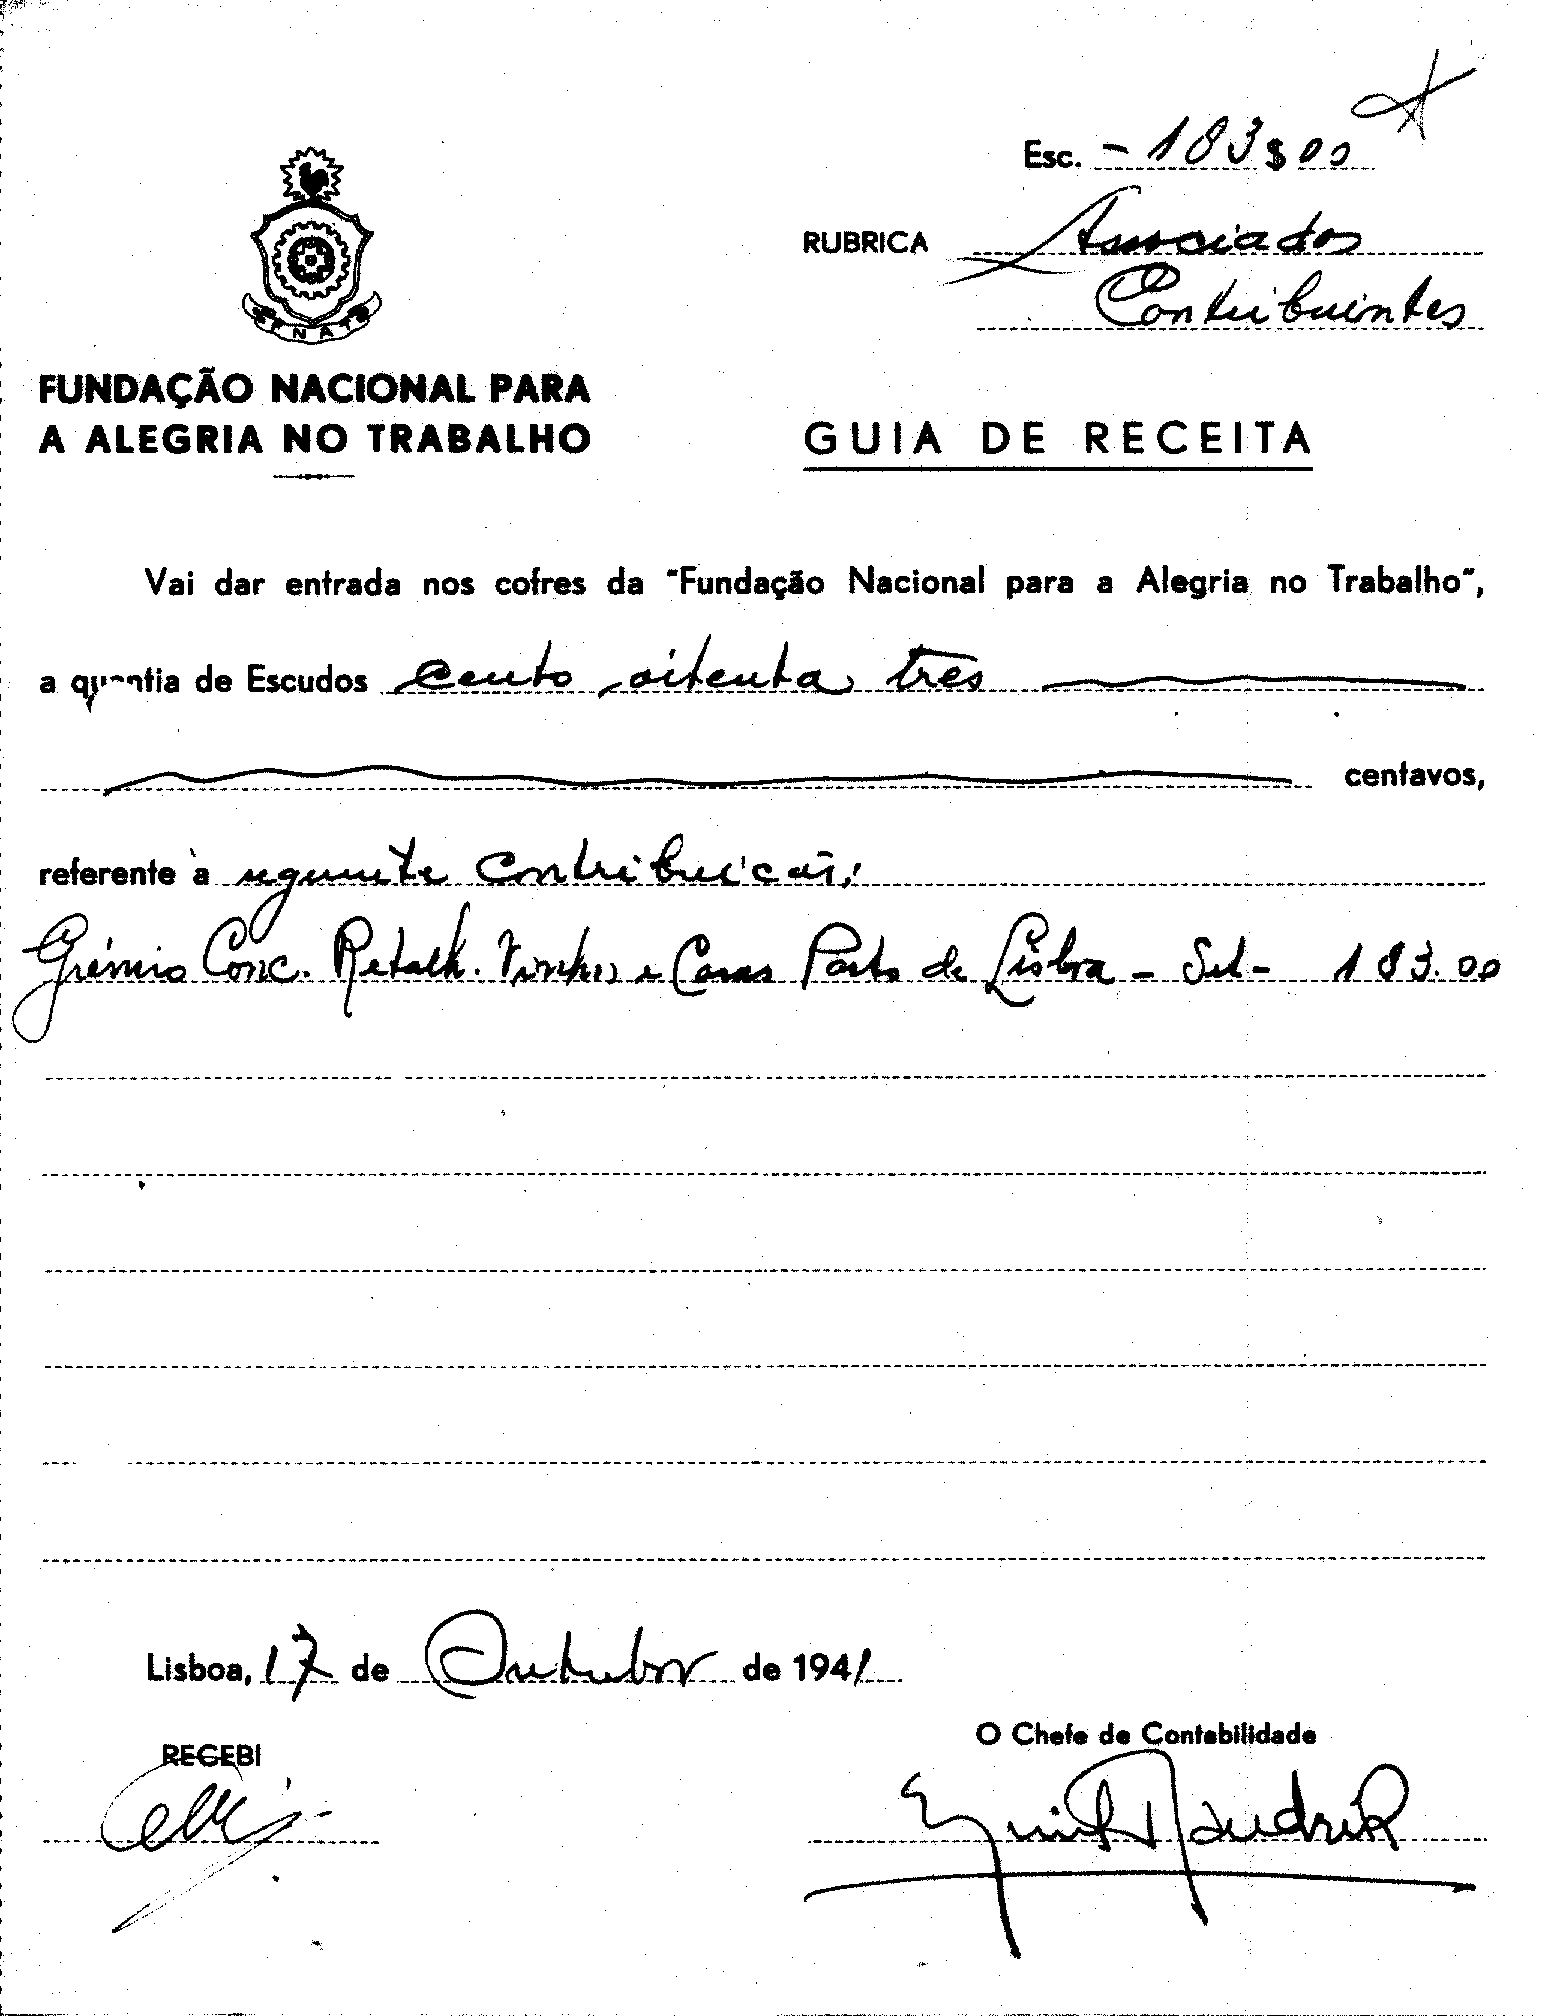 Esc. - 183$00
RUBRICA Associados
Contribuintes
FNAT
FUNDAÇÃO NACIONAL PARA
A ALEGRIA NO TRABALHO
GUIA DE RECEITA
Vai dar entrada nos cofres da "Fundação Nacional para a Alegria no Trabalho",
a quantia de Escudos cento oitenta três
centavos,
referente à seguinte contribuição:
Grémio Conc. Retalh. Vinhos e Casas Pasto de Lisboa - Set - 183.00
Lisboa, 17 de Outubro de 1941
RECEBI
O Chefe de Contabilidade